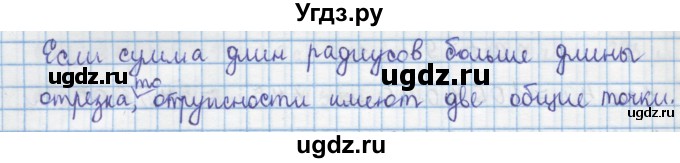 Угдз.ру
Если сумма длин радиусов больше длины
ugdz.ru ugdz.ru
то
отрезка, окружности имеют две общие точки.
ugdz.ru
ugdz.ru